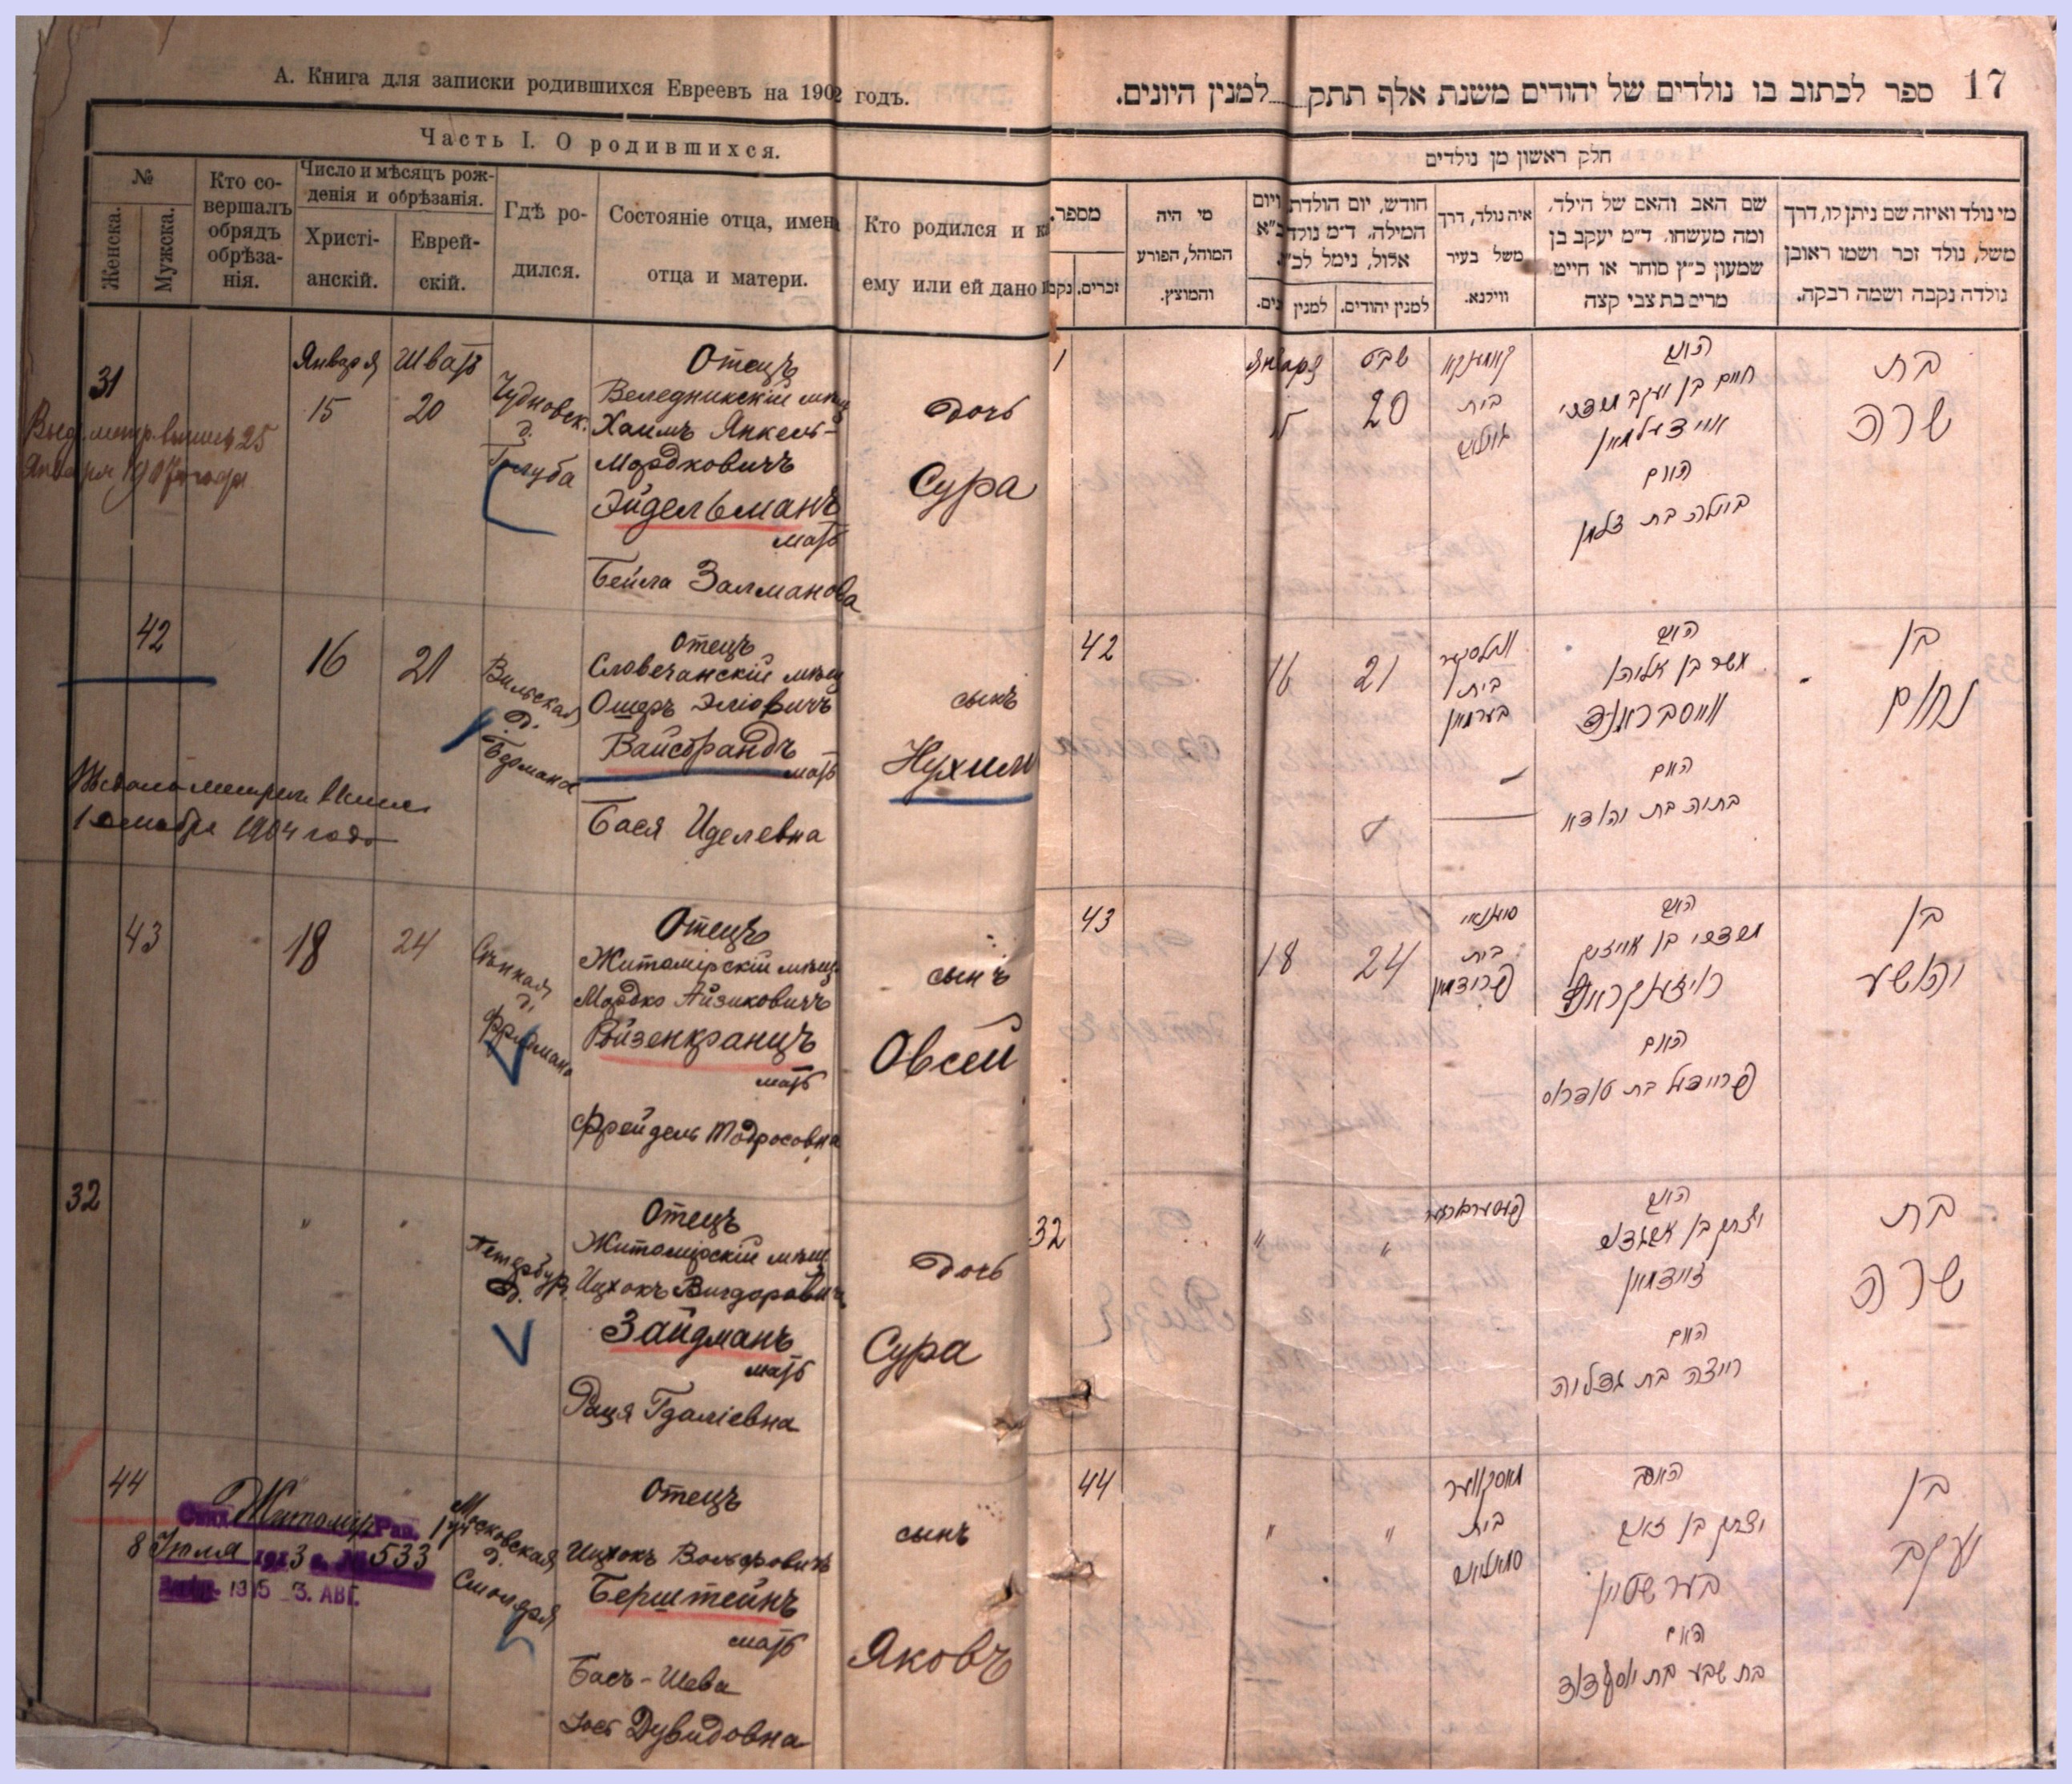 А. Книга для записки родившихся Евреевъ на 1902 годъ.
Часть I. О родившихся.
№
Женска.
Мужска.
Кто со-
вершалъ
обрядъ
обрѣза-
нія.
Число и мѣсяцъ рож-
денія и обрѣзанія.
Христі-
анскій.
Еврей-
скій.
Гдѣ ро-
дился.
Состояніе отца, имена
отца и матери.
Кто родился и ка
ему или ей дано
31
Января
15
Шватъ
20
Чудновск.
д.
Голуба
Отецъ
Веледникскій мѣщ
Хаимъ Янкель-
Мордковичъ
Эйдельманъ
мать
Бейла Залманова
дочь
Сура
42
16
21
Вильская
д.
Бермана
Отецъ
Словечанскій мѣщ
Ошеръ Эліовичъ
Вайсбрандъ
мать
Бася Иделевна
сынъ
Нухим
1904 года
43
18
24
Сѣнная
д.
Фридмана
Отецъ
Житомірскій мѣщ.
Мордко Айзиковичъ
Ройзенкранцъ
мать
Фрейдель Тодросовна
сынъ
Овсей
32
"
"
Петербур.
д.
Отецъ
Житомірскій мѣщ
Ицхокъ Вигдоровичъ
Зайдманъ
мать
Раця Гдаліевна
дочь
Сура
44
Житомир Рав.
8 Іюля 1913 г. № 533
1915 3. АВГ.
Московская
д.
Столяра
Отецъ
Ицхокъ Вольфовичъ
Берштейнъ
мать
Басъ-Шева
Дувидовна
сынъ
Яковъ
17
ספר לכתוב בו נולדים של יהודים משנת אלף תתק למנין היונים.
חלק ראשון מן נולדים
מי נולד ואיזה שם ניתן לו, דרך
משל, נולד זכר ושמו ראובן
נולדה נקבה ושמה רבקה.
שם האב והאם של הילד,
ומה מעשהו. ד״מ יעקב בן
שמעון כ״ץ סוחר או חייט
מרים בת צבי קצה
איה נולד, דרך
משל בעיר
ווילנא.
חודש, יום הולדת ויום
המילה. ד״מ נולד
אלול, נימל לכ״
למנין יהודים.
למנין
מי היה
המוהל, הפורע
והמוצץ.
מספר.
זכרים.
בת
שרה
האב
חיים בן יעקב מרדכי
איידעלמאן
האם
ביילה בת זלמן
בית
שבט
20
15
בן
נחום
האב
אשר בן אליהו
ווייסבראנד
האם
בית
בערמאן
21
16
42
בן
יהושע
האב
מרדכי בן אייזיק
רויזענקראנץ
האם
פריידיל בת טודרוס
בית
פרידמאן
24
18
43
בת
שרה
האב
זיידמאן
האם
רייצה בת גדליה
"
"
32
בן
יעקב
האב
יצחק בן זאב
בערשטיין
האם
בת שבע בת יוסף דוד
מאסקווער
בית
"
"
44